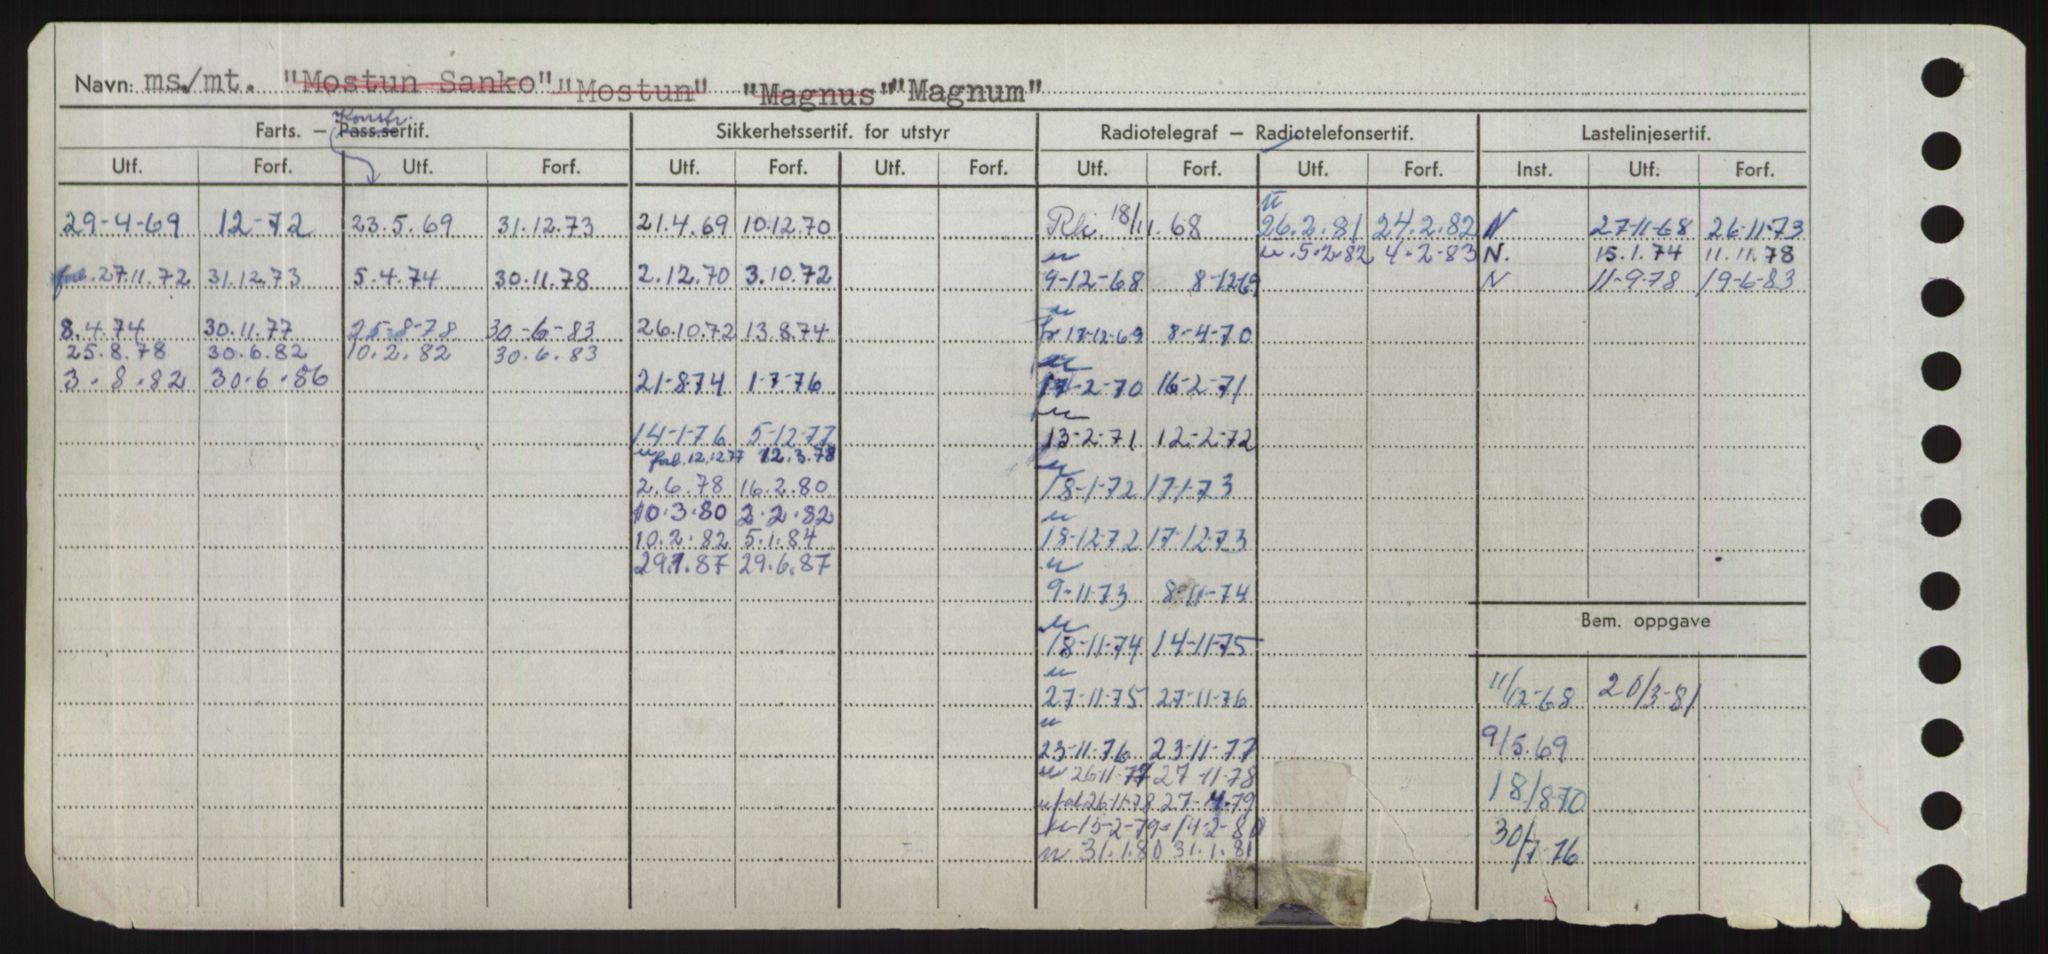 Navn: ms./mt. "Mostun Sanko" "Mostun" "Magnus" "Magnum"
Konstr.
Farts. – Pass.sertif. Sikkerhetssertif. for utstyr Radiotelegraf – Radiotelefonsertif. Lastelinjesertif.
Utf. Forf. Utf. Forf. Utf. Forf. Utf. Forf. Utf. Forf. Utf. Forf. Inst. Utf. Forf.
29-4-69 12-72 23.5.69 31.12.73 21.4.69 10.12.70 18/11.68 26.2.81 24.2.82 N 27-11-68 26-11-73
u. 5.2.82 4-2-83 N. 15.1.74 11.11.78
27.11.72 31.12.73 5.4.74 30.11.78 2.12.70 3.10.72 9-12-68 8-12-69 N 11-9-78 19-6-83
8.4.74 30.11.77 25-8-78 30-6-83 26.10.72 13.8.74 17-12-69 8-4-70
25.8.78 30.6.82 10.2.82 30.6.83
3.8.82 30.6.86 21-8.74 1-7-76 17-2-70 16-2-71
14-1-76 5-12-77 13-2-71 12-2-72
12.12.77 12.3.78
2.6.78 16.2.80 18-1-72 17-1-73
10.3.80 2.2.82
10.2.82 5.1.84 18-12-72 17-12-73
29.1.87 29.6.87
9-11-73 8-11-74
Bem. oppgave
18-11-74 14-11-75
27-11-75 27-11-76 11/12-68 20/3-81
23-11-76 23-11-77 9/5.69
u 26-11-77 27-11-78
26-11-78 27-4-79 18/8-70
15-2-79 14-2-80
u 31.1.80 31.1.81 30/7-76